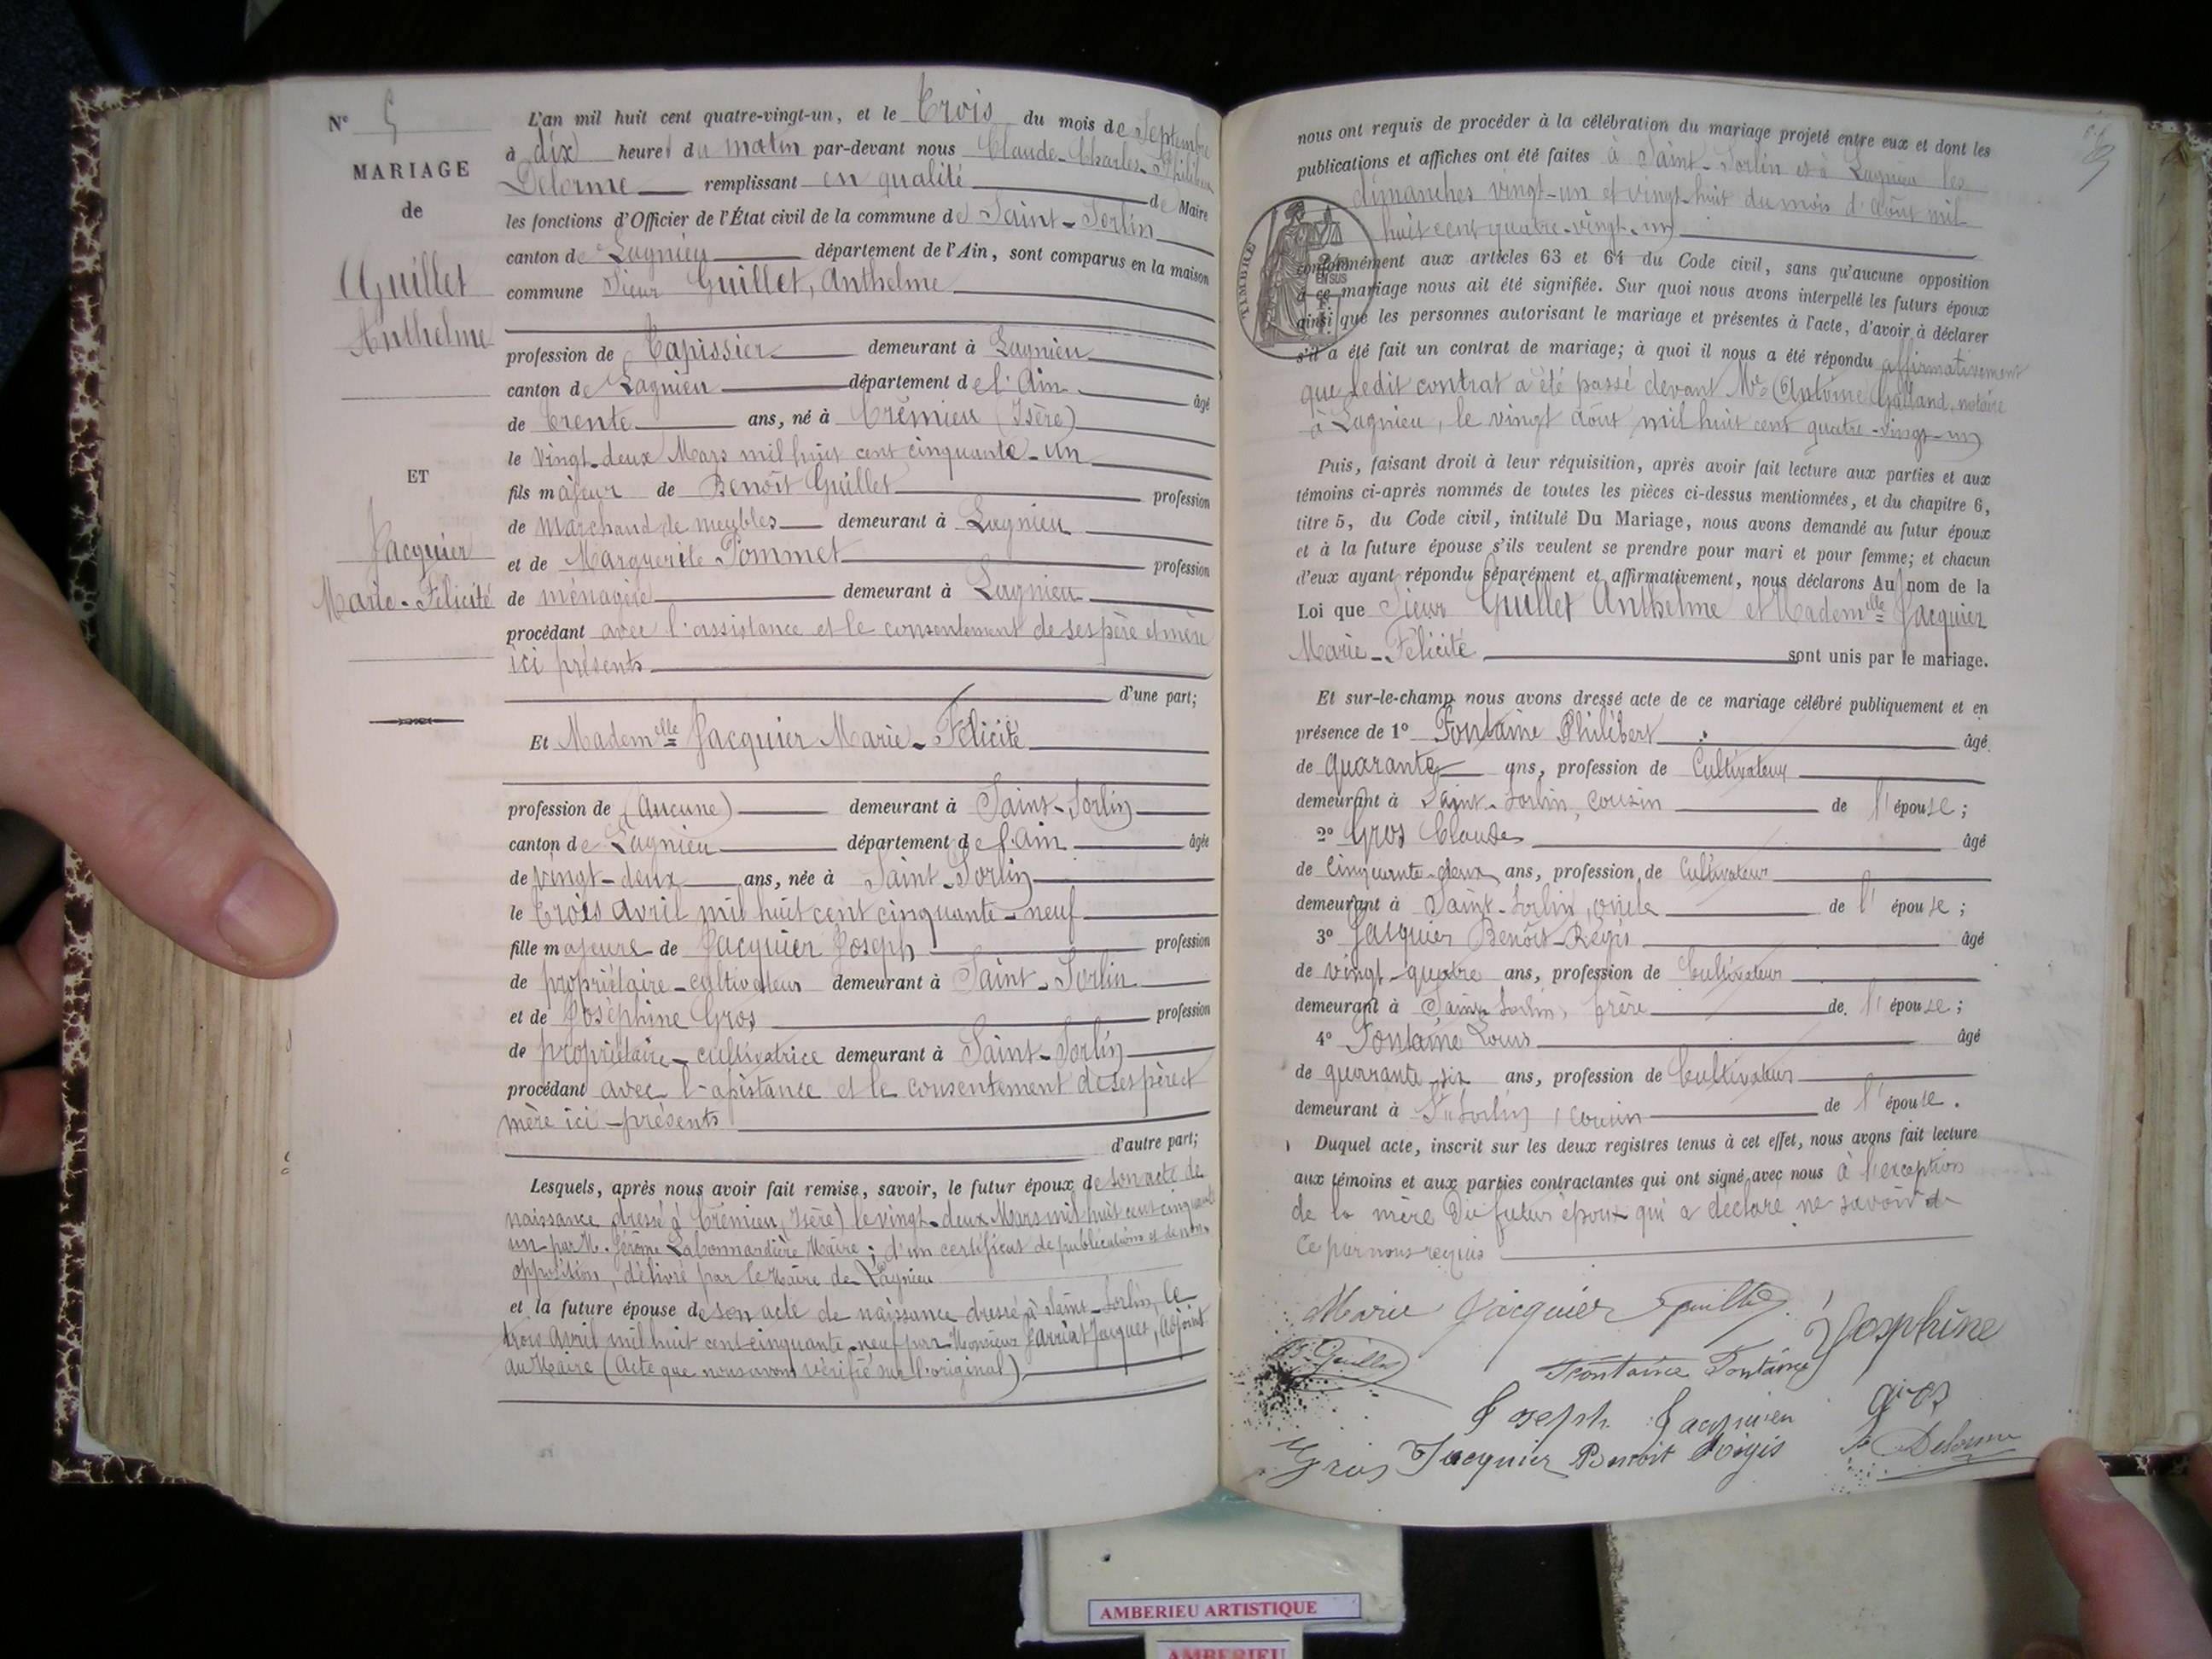 N° 5
MARIAGE
de
Guillet
Anthelme
ET
Jacquier
Marie-Félicité
L'an mil huit cent quatre-vingt-un, et le Trois du mois de Septembre
à dix heures du matin par-devant nous Claude-Charles-Philibert
Delorme remplissant en qualité de Maire
les fonctions d'Officier de l'État civil de la commune de Saint-Sorlin
canton de Lagnieu département de l'Ain, sont comparus en la maison
commune Sieur Guillet, Anthelme
profession de Tapissier demeurant à Lagnieu
canton de Lagnieu département de l'Ain âgé
de trente ans, né à Crémieu (Isère)
le vingt-deux Mars mil huit cent cinquante-un
fils majeur de Benoît Guillet profession
de marchand de meubles demeurant à Lagnieu
et de Marguerite Pommet profession
de ménagère demeurant à Lagnieu
procédant avec l'assistance et le consentement de ses père et mère
ici présents
d'une part;
Et Madem^lle Jacquier Marie-Félicité
profession de (Aucune) demeurant à Saint-Sorlin
canton de Lagnieu département de l'Ain âgée
de vingt-deux ans, née à Saint-Sorlin
le trois avril mil huit cent cinquante-neuf
fille majeure de Jacquier Joseph profession
de propriétaire-cultivateur demeurant à Saint-Sorlin
et de Joséphine Gros profession
de propriétaire-cultivatrice demeurant à Saint-Sorlin
procédant avec l'assistance et le consentement de ses père et
mère ici-présents
d'autre part;
Lesquels, après nous avoir fait remise, savoir, le futur époux de son acte de
naissance dressé à Crémieu, Isère) le vingt-deux Mars mil huit cent cinquante
un par M. Jérôme Labonnardière Maire; d'un certificat de publications et de non
opposition, délivré par le Maire de Lagnieu
et la future épouse de son acte de naissance dressé à Saint-Sorlin, le
trois Avril mil huit cent cinquante-neuf par Monsieur Jacquet, adjoint
au Maire (Acte que nous avons vérifié sur l'original)
nous ont requis de procéder à la célébration du mariage projeté entre eux et dont les
publications et affiches ont été faites à Saint-Sorlin et à Lagnieu les
dimanches vingt-un et vingt-huit du mois d'août mil
huit cent quatre-vingt-un
TIMBRE
conformément aux articles 63 et 64 du Code civil, sans qu'aucune opposition
à ce mariage nous ait été signifiée. Sur quoi nous avons interpellé les futurs époux
ainsi que les personnes autorisant le mariage et présentes à l'acte, d'avoir à déclarer
s'il a été fait un contrat de mariage; à quoi il nous a été répondu affirmativement
que ledit contrat a été passé devant M^e Antoine Galland, notaire
à Lagnieu, le vingt août mil huit cent quatre-vingt-un
Puis, faisant droit à leur réquisition, après avoir fait lecture aux parties et aux
témoins ci-après nommés de toutes les pièces ci-dessus mentionnées, et du chapitre 6,
titre 5, du Code civil, intitulé Du Mariage, nous avons demandé au futur époux
et à la future épouse s'ils veulent se prendre pour mari et pour femme; et chacun
d'eux ayant répondu séparément et affirmativement, nous déclarons Au nom de la
Loi que Sieur Guillet Anthelme et Madem^lle Jacquier
Marie-Félicité sont unis par le mariage.
Et sur-le-champ nous avons dressé acte de ce mariage célébré publiquement et en
présence de 1° Fontaine Philibert âgé
de quarante ans, profession de Cultivateur
demeurant à Saint-Sorlin, cousin de l'épouse;
2° Gros Claude âgé
de cinquante-deux ans, profession de Cultivateur
demeurant à Saint-Sorlin, oncle de l'épouse;
3° Jacquier Benoît-Régis âgé
de vingt-quatre ans, profession de Cultivateur
demeurant à Saint-Sorlin, frère de l'épouse;
4° Fontaine Louis âgé
de quarante-six ans, profession de Cultivateur
demeurant à St Sorlin, cousin de l'épouse.
Duquel acte, inscrit sur les deux registres tenus à cet effet, nous avons fait lecture
aux témoins et aux parties contractantes qui ont signé avec nous à l'exception
de la mère du futur époux qui a déclaré ne savoir de
ce par nous requis
Marie Jacquier Guillet
Josephine
B. Guillet
Fontaine Fontaine
gros
Joseph Jacquier
Gros Jacquier Benoit Régis Delorme
AMBERIEU ARTISTIQUE
AMBERIEU